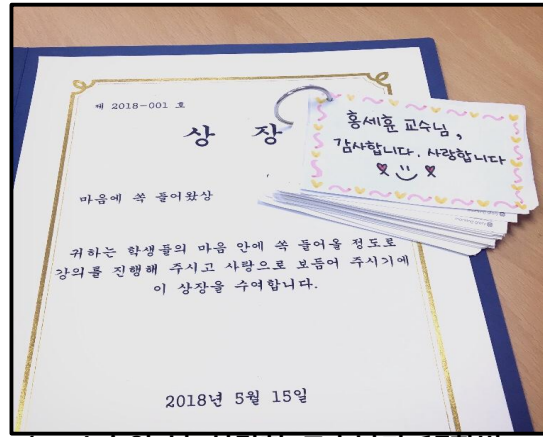 제 2018-001 호
상 장
마음에 쏙 들어왔상
귀하는 학생들의 마음 안에 쏙 들어올 정도로
강의를 진행해 주시고 사랑으로 보듬어 주시기에
이 상장을 수여합니다.
2018년 5월 15일
홍세훈 교수님,
감사합니다. 사랑합니다